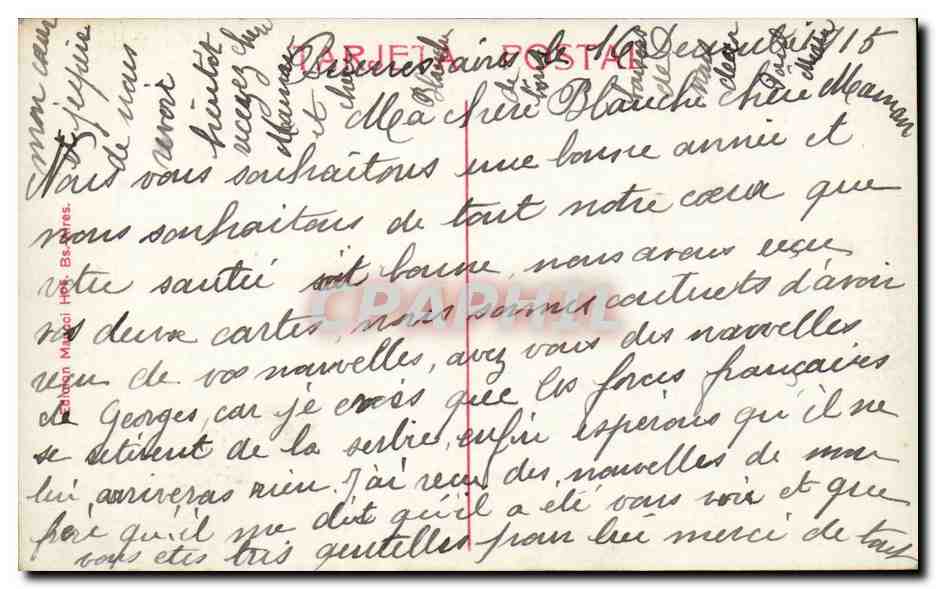 TARJETA POSTAL
Buenos aires le 16 Decembre 1915
Ma chère Blanche chère Maman
Nous vous souhaitons une bonne année et
nous souhaitons de tout notre cœur que
votre santé soit bonne, nous avons reçu
vos deux cartes, nous sommes contents d'avoir
reçu de vos nouvelles, avez vous des nouvelles
de Georges, car je crois que les forces françaises
se retirent de la serbie, enfin espérons qu'il ne
lui arriveras rien. J'ai reçu des nouvelles de mon
frère qu'il me dit qu'il a été vous voir et que
vous etes très gentilles pour lui merci de tout
mon cœur
et j'espère
de nous
revoir
bientot
recevez chère
Maman
et chère
Blanche
de
vous
de
deux
Marie
Edicion Mattoci Hos. Bs. Aires.
CPAPHIL